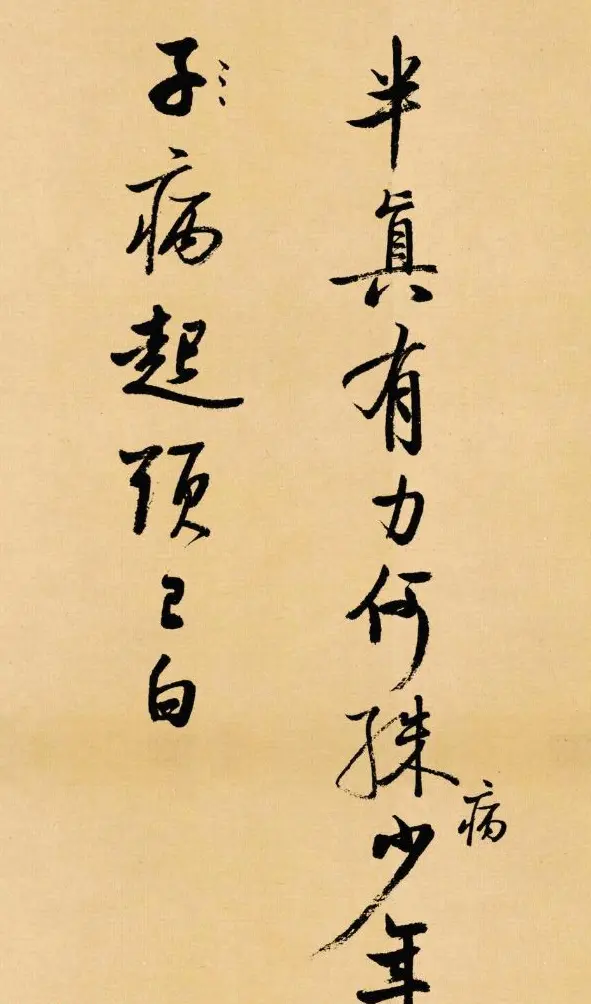 半眞有力何殊病少年
子病起頭已白